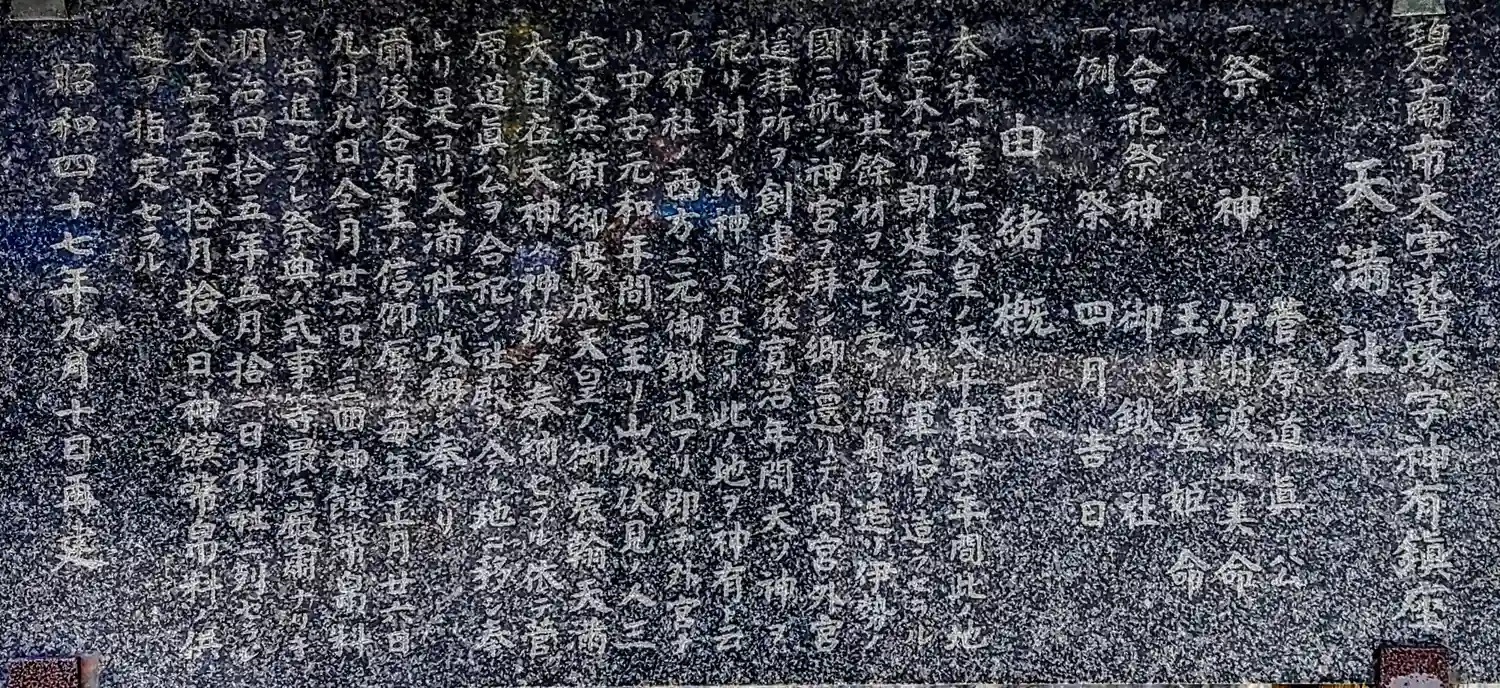 碧南市大字鷲塚字神有鎮座
天満社
菅原道真公
一祭神 伊射波止美命
玉柱屋姫命
一合祀祭神 御鍬社
一例祭 四月吉日
由緒概要
本社ハ淳仁天皇ノ天平宝字年間此ノ地
ニ巨木アリ朝廷ニ於テ伐ノ軍船ヲ造ラセラル
村民其餘材ヲ乞ヒ受ケ漁舟ヲ造リ伊勢
國ニ航シ神宮ヲ拝シ郷ニ還リテ内宮外宮
遥拝所ヲ創建シ後寛治年間天ツ神ヲ
祀リ村ノ氏神トス是ヨリ此ノ地ヲ神有ト云
フ神社ノ西方ニ元御鍬社アリ即チ外宮ナ
リ中古元和年間ニ至リ山城伏見ノ人三
宅又兵衛御陽成天皇ノ御宸翰天満
大自在天神ノ神號ヲ奉納セラル依テ菅
原道眞公ヲ合祀シ社殿ヲ今ノ地ニ移シ奉
レリ是ヨリ天満社ト改稱シ奉レリ
爾後各領主ノ信仰厚ク毎年正月廿六日
九月九日仝月廿六日ノ三面神饌幣帛料
ヲ供進セラレ祭典ノ式事等最モ厳粛ナリキ
明治四拾五年五月拾一日村社ニ列セラレ
大正五年拾月拾八日神饌幣帛料ノ供
進ヲ指定セラル
昭和四十七年九月十日再建